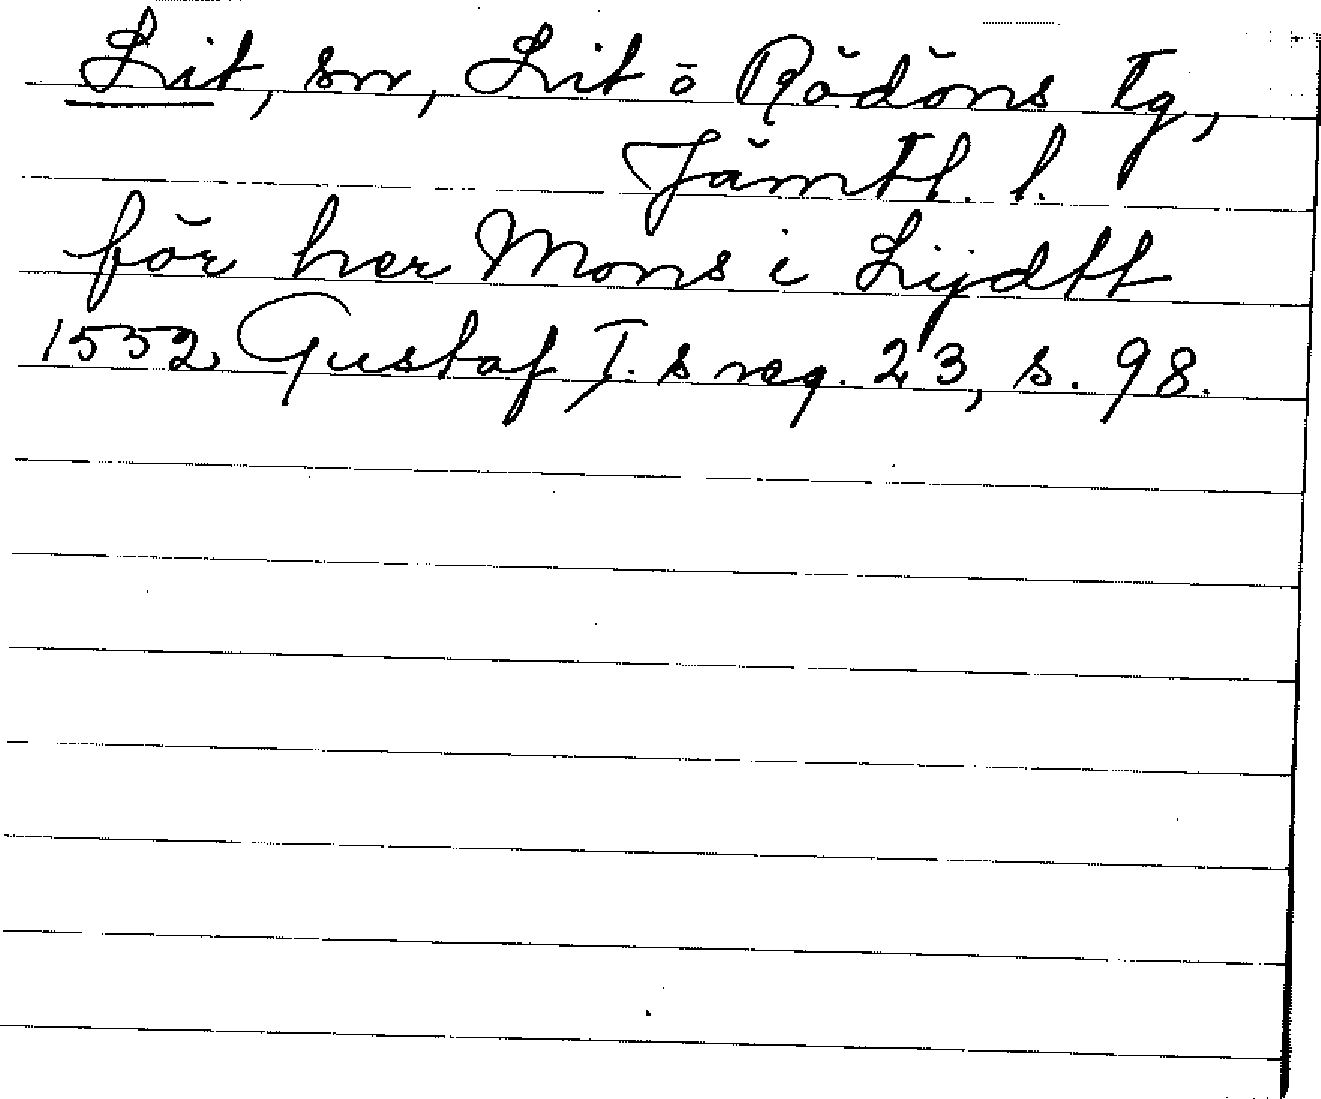 Lit, sn, Lit o Rödöns tg,
Jämtl. l.
för her Mons i Lijdtt
1552 Gustaf I. s reg. 23, s. 98.